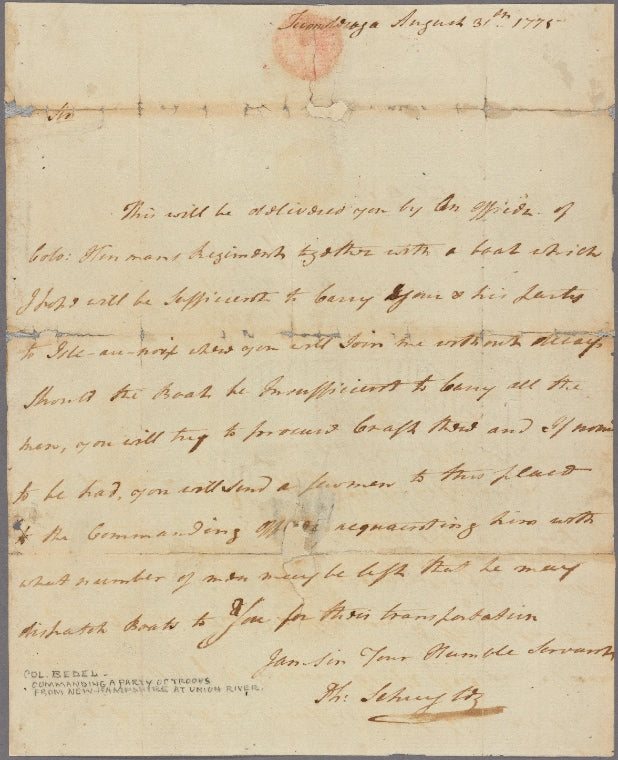 Ticonderoga August 31th. 1775
Sir
This will be delivered you by An officer of
Colo: Hinmans Regiment together with a boat which
I hope will be Sufficient to Carry your & his party
to Isle-au-noix where you will Join me without delay
Should the Boat be Insufficient to Carry all the
men, you will try to procure Craft there and If none
to be had, you will send a few men to this place
to the Commanding officer acquainting him with
what number of men may be left that he may
dispatch Boats to You for their transportation
I am Sir Your Humble Servant
Ph: Schuyler
COL. BEDEL.
COMMANDING A PARTY OF TROOPS
FROM NEW HAMPSHIRE AT UNION RIVER.